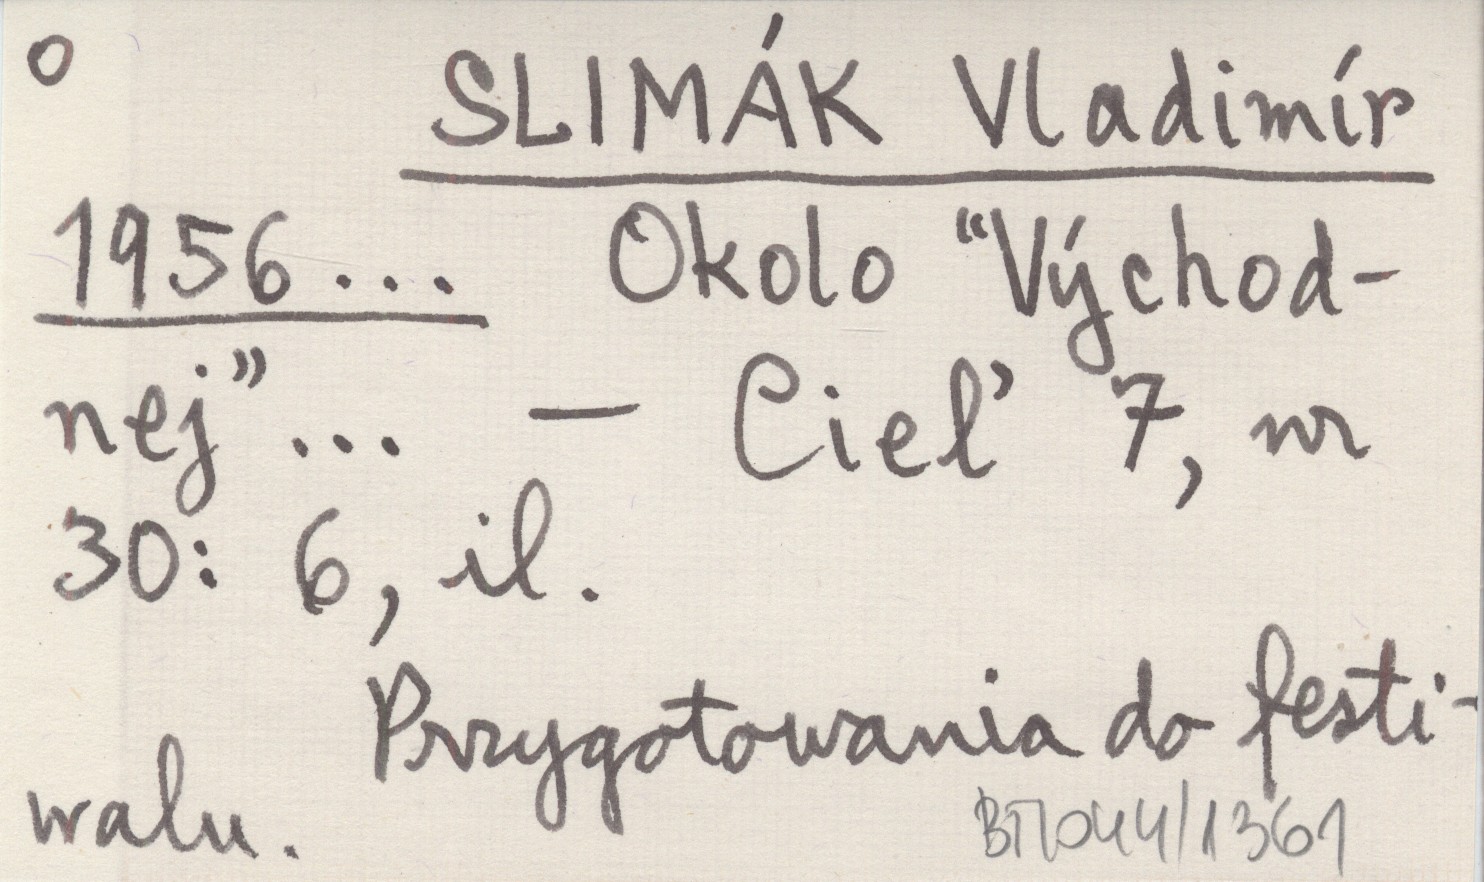 o SLIMÁK Vladimír
1956... Okolo “Východ-
nej”... — Cieľ 7, nr
30: 6, il.
Przygotowania do festi-
walu.
BT/044/1361